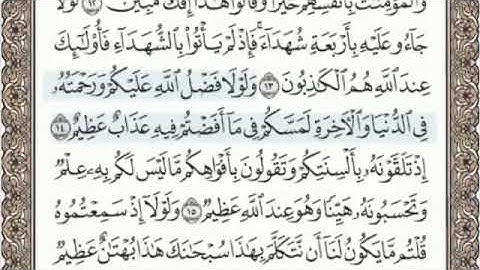 وَالْمُؤْمِنَٰتُ بِأَنفُسِهِمْ خَيْرًا وَقَالُوا۟ هَٰذَآ إِفْكٌ مُّبِينٌ ١٢ لَّوْلَا
جَآءُو عَلَيْهِ بِأَرْبَعَةِ شُهَدَآءَ ۚ فَإِذْ لَمْ يَأْتُوا۟ بِالشُّهَدَآءِ فَأُو۟لَٰٓئِكَ
عِندَ اللَّهِ هُمُ الْكَٰذِبُونَ ١٣ وَلَوْلَا فَضْلُ اللَّهِ عَلَيْكُمْ وَرَحْمَتُهُۥ
فِى الدُّنْيَا وَالْءَاخِرَةِ لَمَسَّكُمْ فِى مَآ أَفَضْتُمْ فِيهِ عَذَابٌ عَظِيمٌ ١٤
إِذْ تَلَقَّوْنَهُۥ بِأَلْسِنَتِكُمْ وَتَقُولُونَ بِأَفْوَاهِكُم مَّا لَيْسَ لَكُم بِهِۦ عِلْمٌ
وَتَحْسَبُونَهُۥ هَيِّنًا وَهُوَ عِندَ اللَّهِ عَظِيمٌ ١٥ وَلَوْلَآ إِذْ سَمِعْتُمُوهُ
قُلْتُم مَّا يَكُونُ لَنَآ أَن نَّتَكَلَّمَ بِهَٰذَا سُبْحَٰنَكَ هَٰذَا بُهْتَٰنٌ عَظِيمٌ